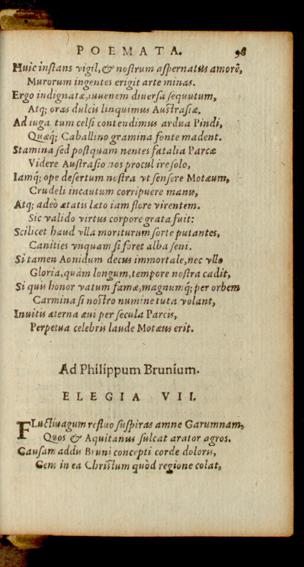 POEMATA. 98
Huic instans vigil, & nostrum aspernatus amorē,
Murorum ingentes erigit arte minas.
Ergo indignatæ, iuuenem diuersa sequutum,
Atq; oras dulcis linquimus Austrasiæ.
Ad iuga tum celsi contendimus ardua Pindi,
Quæq; Caballino gramina fonte madent.
Stamina sed postquam nentes fatalia Parcæ
Videre Austrasio nos procul ire solo,
Iamq; ope desertum nostra vt sensere Motæum,
Crudeli incautum corripuere manu,
Atq; adeò ætatis læto iam flore virentem.
Sic valido virtus corpore grata fuit:
Scilicet haud vlla moriturum sorte putantes,
Canities vnquam si foret alba seni.
Si tamen Aonidum decus immortale, nec vllo
Gloria, quàm longum, tempore nostra cadit,
Si quis honor vatum famæ, magnumq; per orbem
Carmina si nostro numine tuta volant,
Inuitis æterna æui per secula Parcis,
Perpetua celebris laude Motæus erit.
Ad Philippum Brunium.
ELEGIA VII.
FLuctiuagum refluo suspiras amne Garumnam,
Quos & Aquitanus sulcat arator agros.
Causam addis Bruni concepti corde doloris,
Gens in ea Christum quòd regione colat,